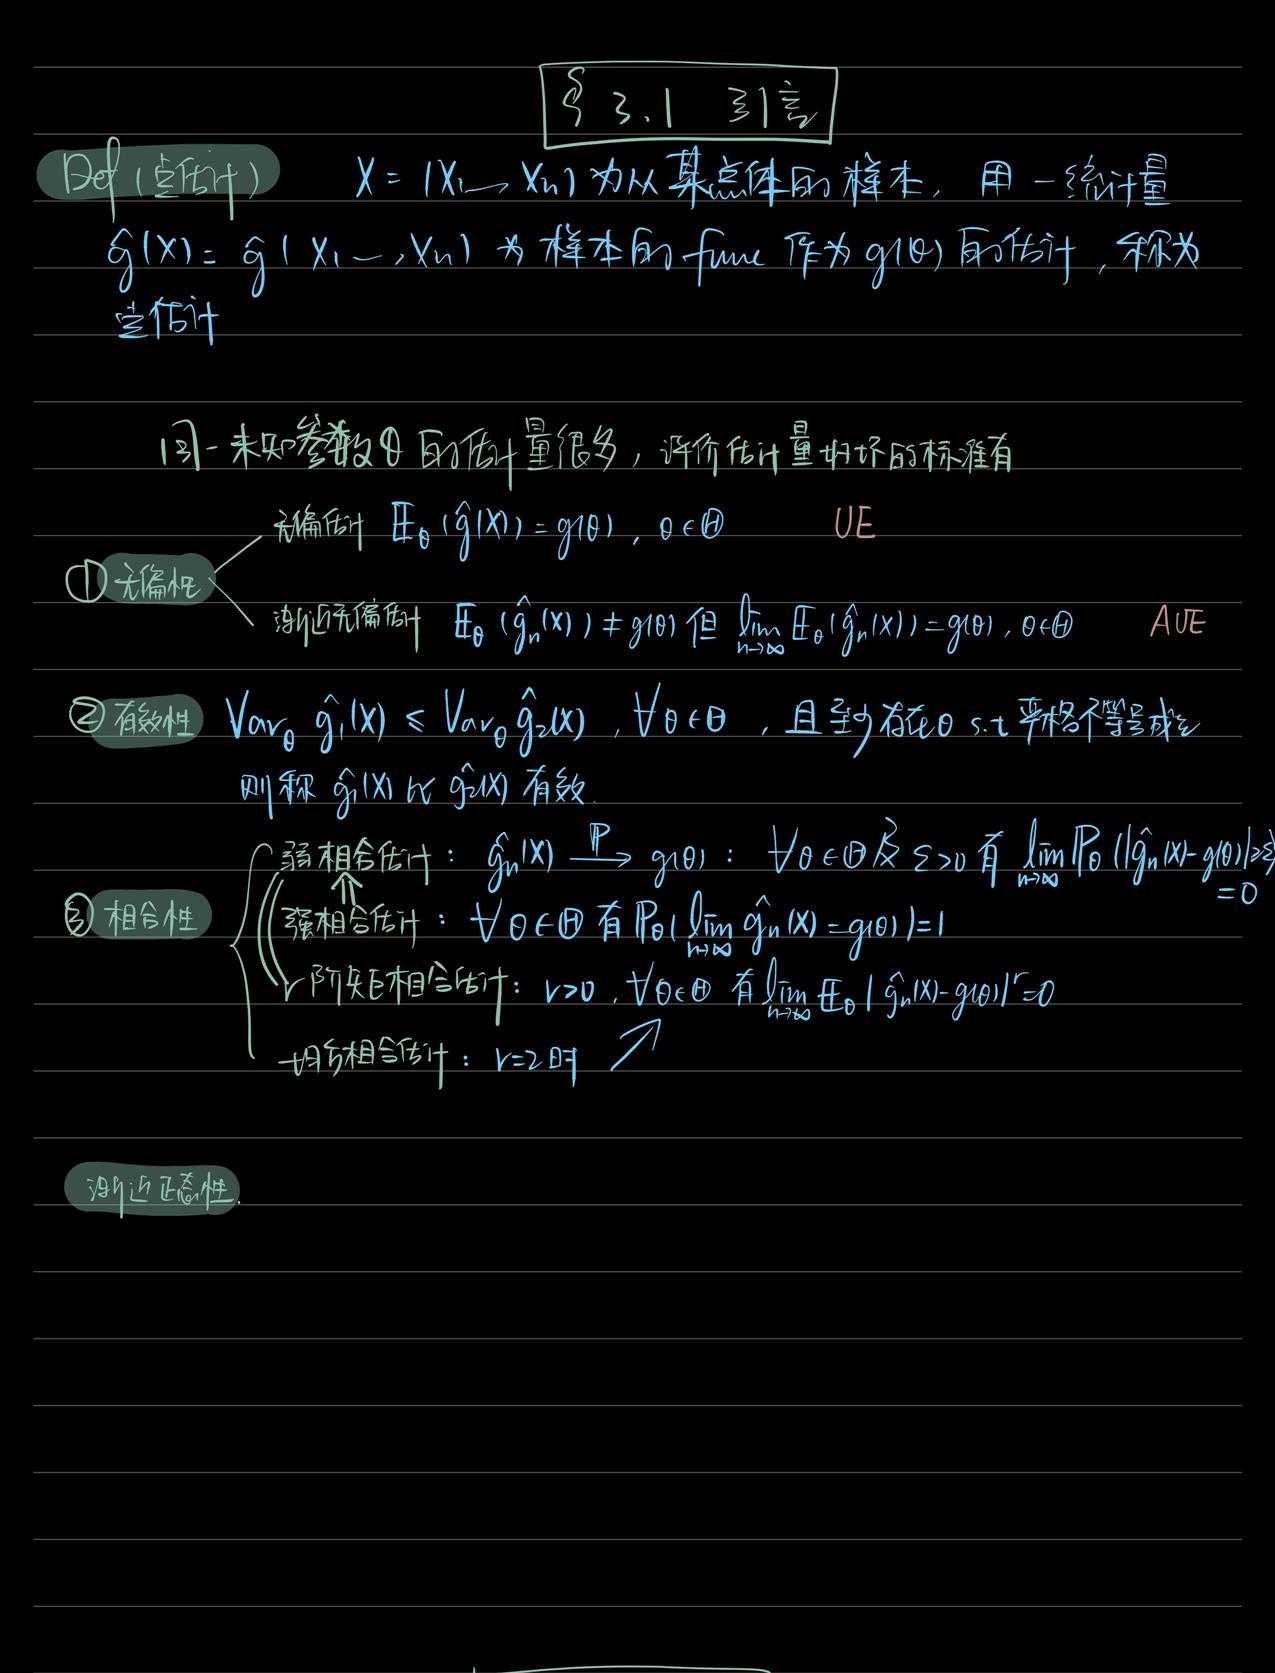 § 3.1 引言
Def (点估计) X = (X₁ ⋯, Xₙ) 为从某点体的样本, 用一统计量
ĝ(X) = ĝ( X₁ ⋯, Xₙ) 为样本的 func 作为 g(θ) 的估计, 称为
点估计
同一未知参数θ的估计量很多, 评价估计量好坏的标准有
无偏估计 𝔼_θ (ĝ(X)) = g(θ), θ∈Θ UE
① 无偏性
渐近无偏估计 𝔼_θ (ĝₙ(X)) ≠ g(θ) 但 lim_{n→∞} 𝔼_θ (ĝₙ(X)) = g(θ), θ∈Θ AUE
② 有效性 Var_θ ĝ₁(X) ≤ Var_θ ĝ₂(X), ∀θ∈Θ, 且至少存在θ s.t 严格不等号成立
则称 ĝ₁(X) 比 ĝ₂(X) 有效.
弱相合估计: ĝₙ(X) —ℙ→ g(θ): ∀θ∈Θ及 ε>0 有 lim_{n→∞} ℙ_θ (|ĝₙ(X)-g(θ)|≥ε)
=0
③ 相合性 ⇑
强相合估计: ∀θ∈Θ 有 ℙ_θ( lim_{n→∞} ĝₙ(X) = g(θ))=1
r阶矩相合估计: r>0, ∀θ∈Θ 有 lim_{n→∞} 𝔼_θ | ĝₙ(X)-g(θ)|^r=0
均方相合估计: r=2时 ↗
渐近正态性.